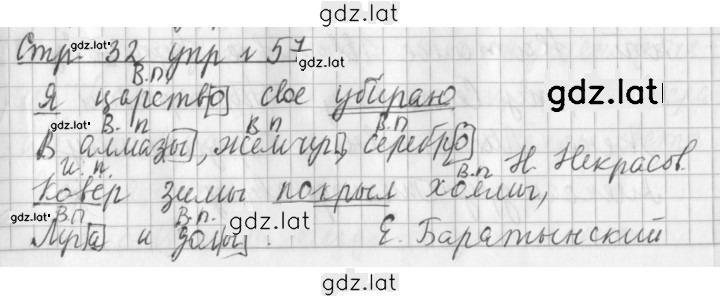 gdz.lat
Стр. 32 упр № 57
gdz.lat
В.п
Я царство свое убираю
gdz.lat
gdz.lat В. п В п В.п
В алмазы, жемчуг, серебро
И. п. В.п Н. Некрасов.
Ковер зимы покрыл холмы,
gdz.lat В.п В.п. gdz.lat
Луга и долы. Е. Баратынский
gdz.lat